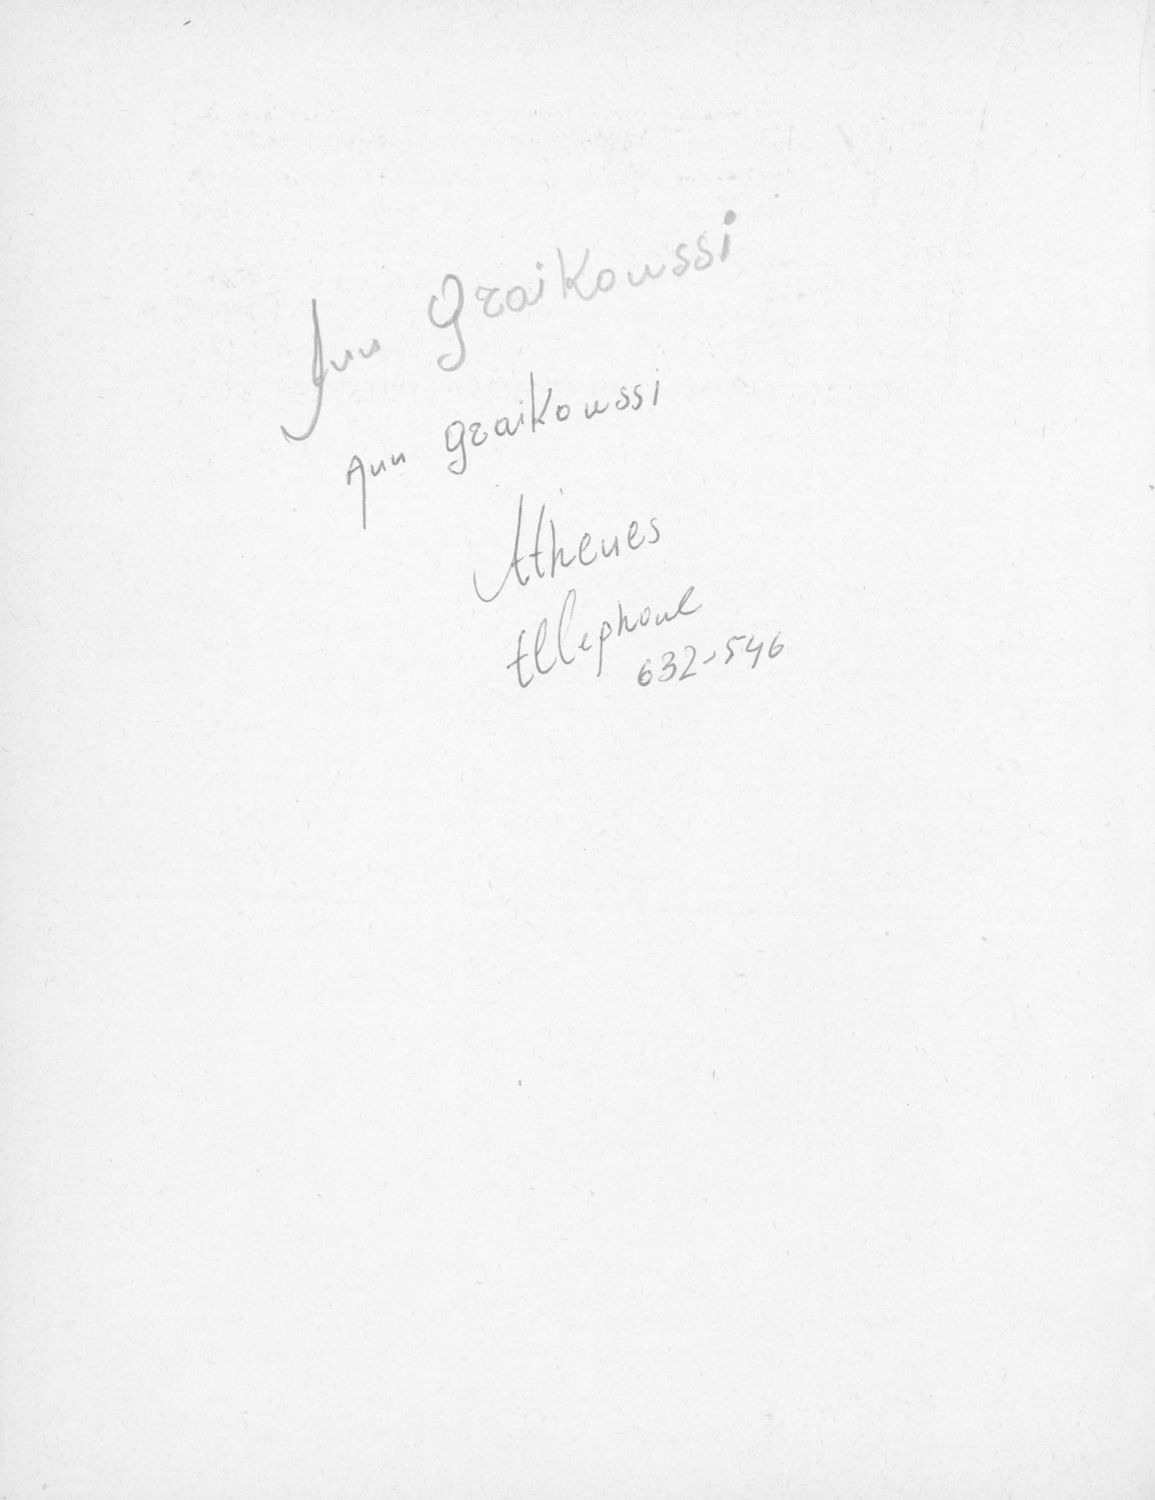 Ann Graikoussi
Ann graikoussi
Athenes
tellephone
632-546